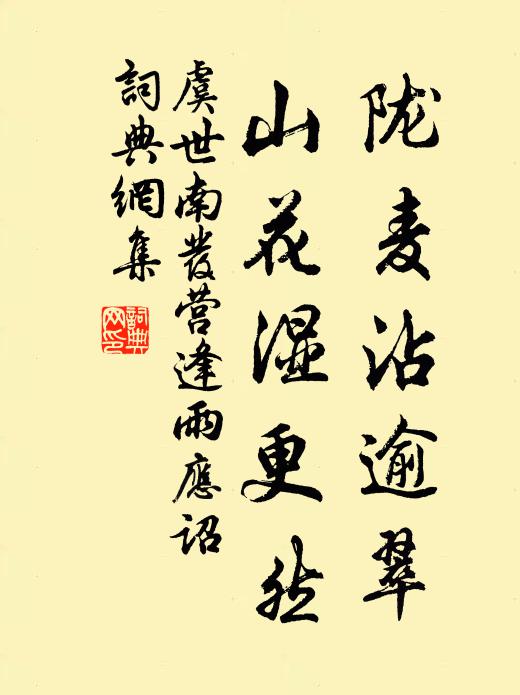 陇麦沾逾翠
山花湿更然
虞世南發营逢雨應诏
詞典網集
詞典网印